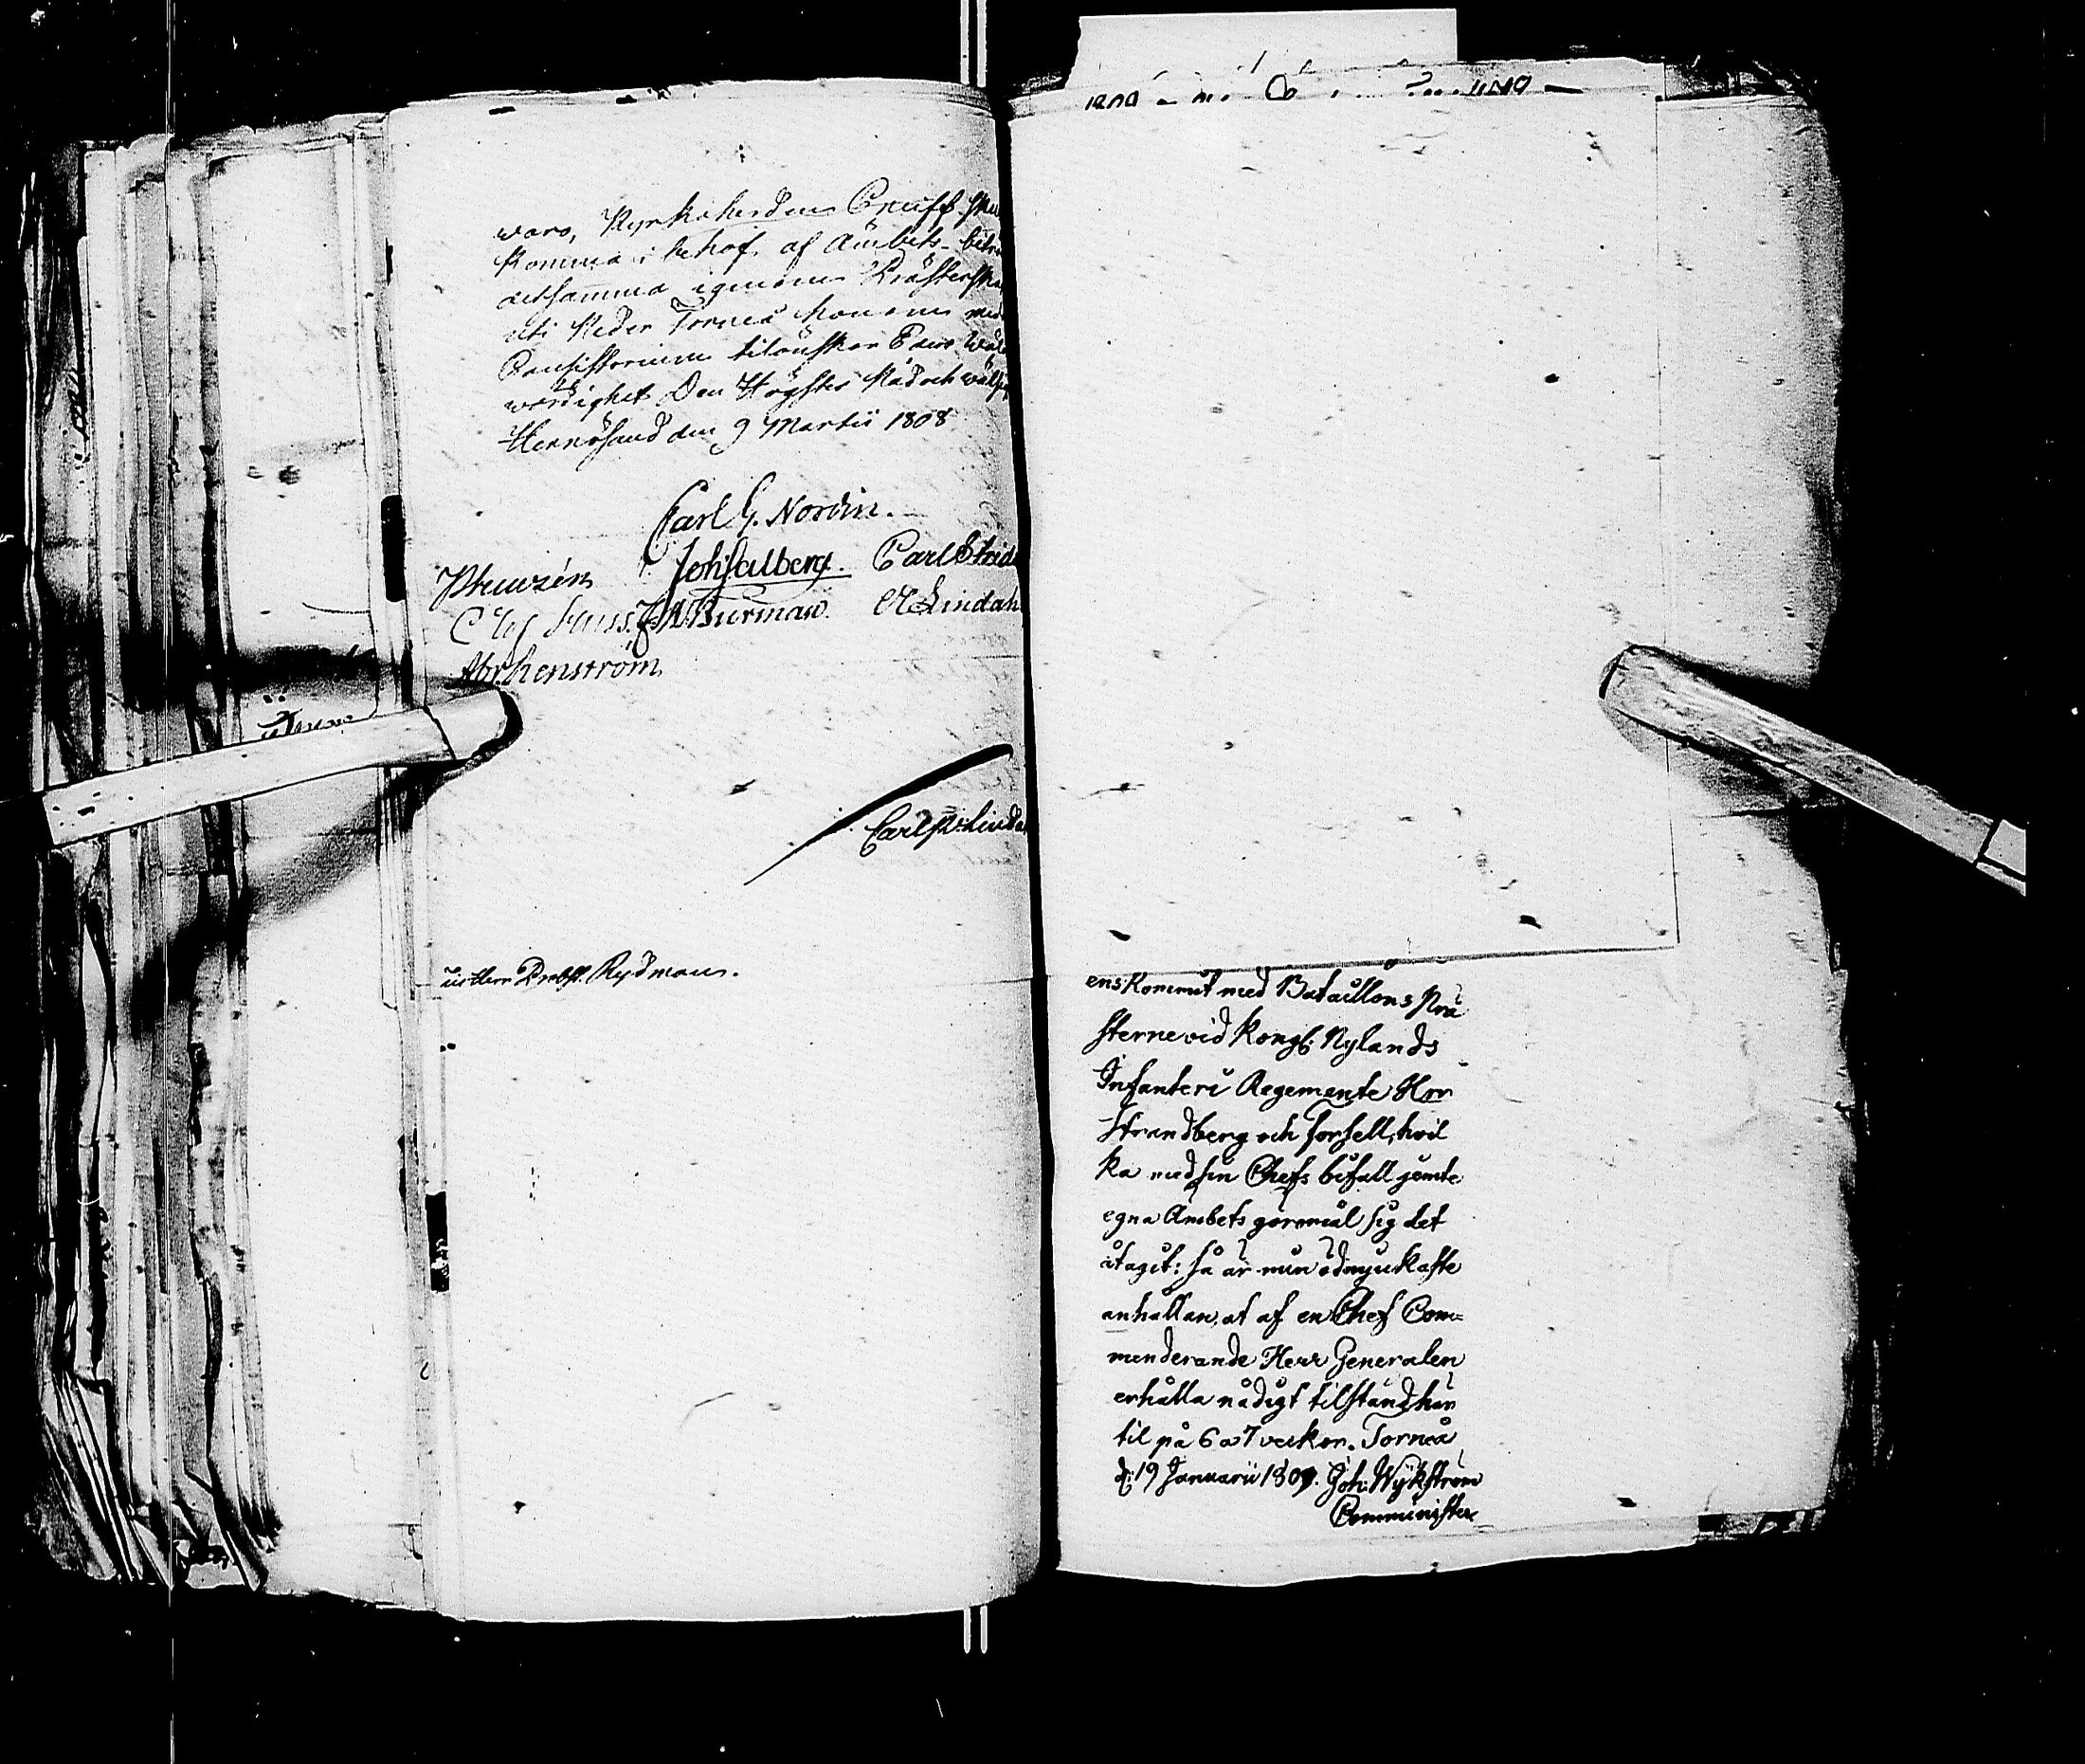 vara, Kyrkoherden Cneiff sku
komma i behof af Ämbets-biträ
detsamma igenom Prästerska
uti Neder Torneå honom med
Consistorium tilönskar Eder Wäl
wördighet Den Högstes Nåd och wälsi
Hernösand den 9 Martii 1808
Carl G. Nordin.
Joh Salberg. Carl Strid
Huss. Burman. Lindah
Abr. Kenström
Carl
Herr Probst. Rydman.
enskommit med Bataillons Prä
sterne vid Kongl. Nylands
Infanterie Regemente Hrr
Strandberg och Forsell, hvil
ka med sin Chefs bifall jemte
egna Ämbets göromål sig det
åtagit: så är min ödmjukaste
anhållan, at af en Chef Com=
menderande Herr Generalen
erhålla nådigt tilstånd här
til på 6 a 7 veckor. Torneå
d: 19 Januarii 1809. Joh: Wykström
Comminister